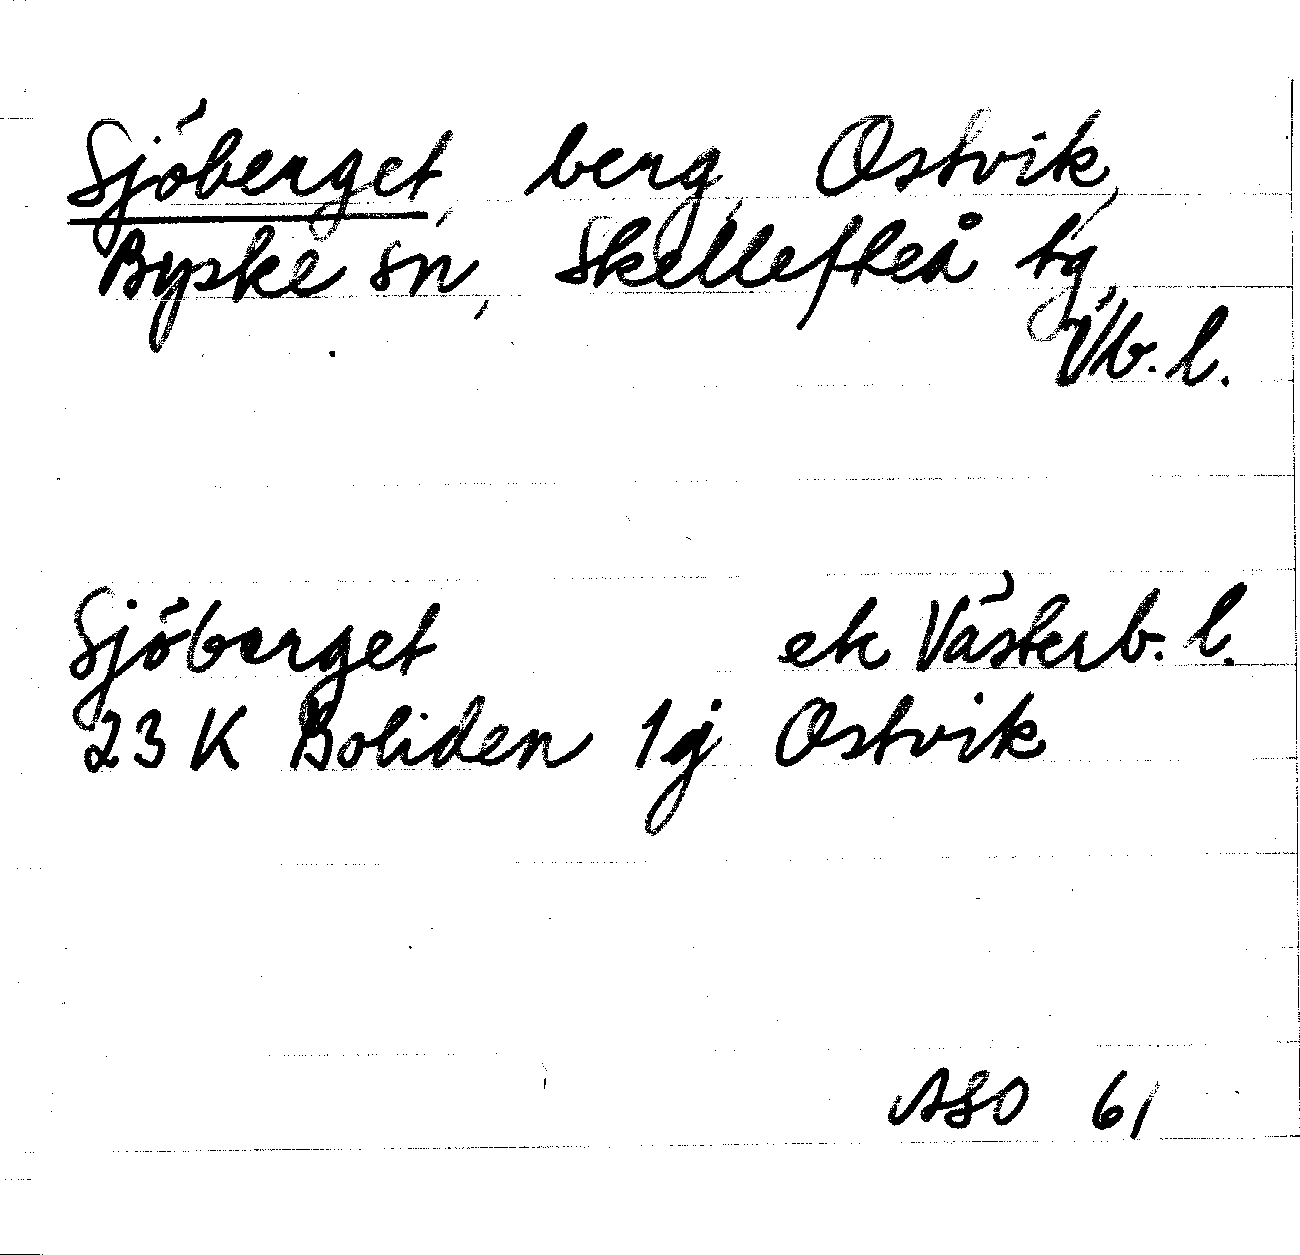 Sjöberget, berg, Ostvik,
Byske sn, Skellefteå tg,
Vb. l.
Sjöberget ek Västerb. l.
23 K Boliden 1j Ostvik
ASO 61